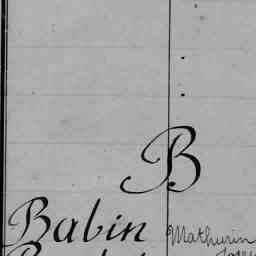 B
Babin Mathurin